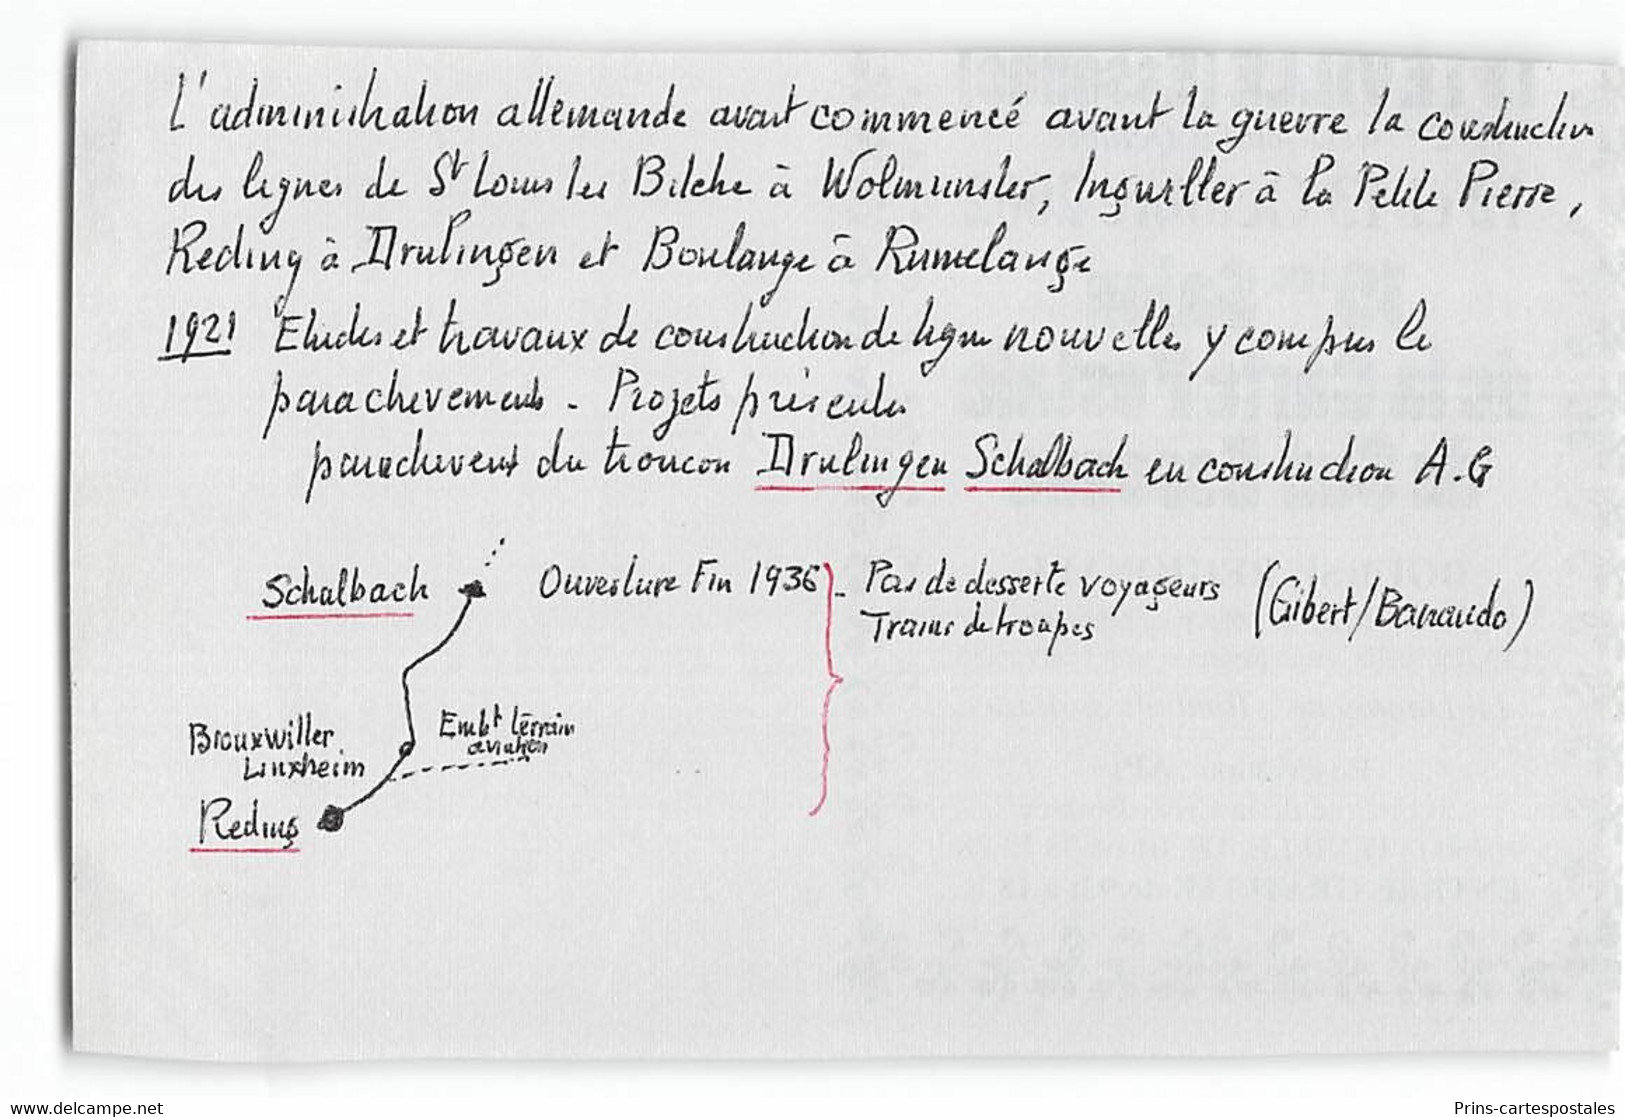 L'administration allemande avait commencé avant la guerre la construction
des lignes de St Louis les Bitche à Wolmunster, Ingwiller à la Petite Pierre,
Reding à Drulingen et Boulange à Rumelange
1921 Etudes et travaux de construction de lignes nouvelles y compris le
parachevements - Projets présentés
parachevent du troncon Drulingen Schalbach en construction A.G
Schalbach Ouverture Fin 1936 - Pas de desserte voyageurs (Gibert/Banaudo)
Trains de troupes
Brouxwiller Embt terrain
Linxheim aviation
Reding
www.delcampe.net Prins-cartespostales